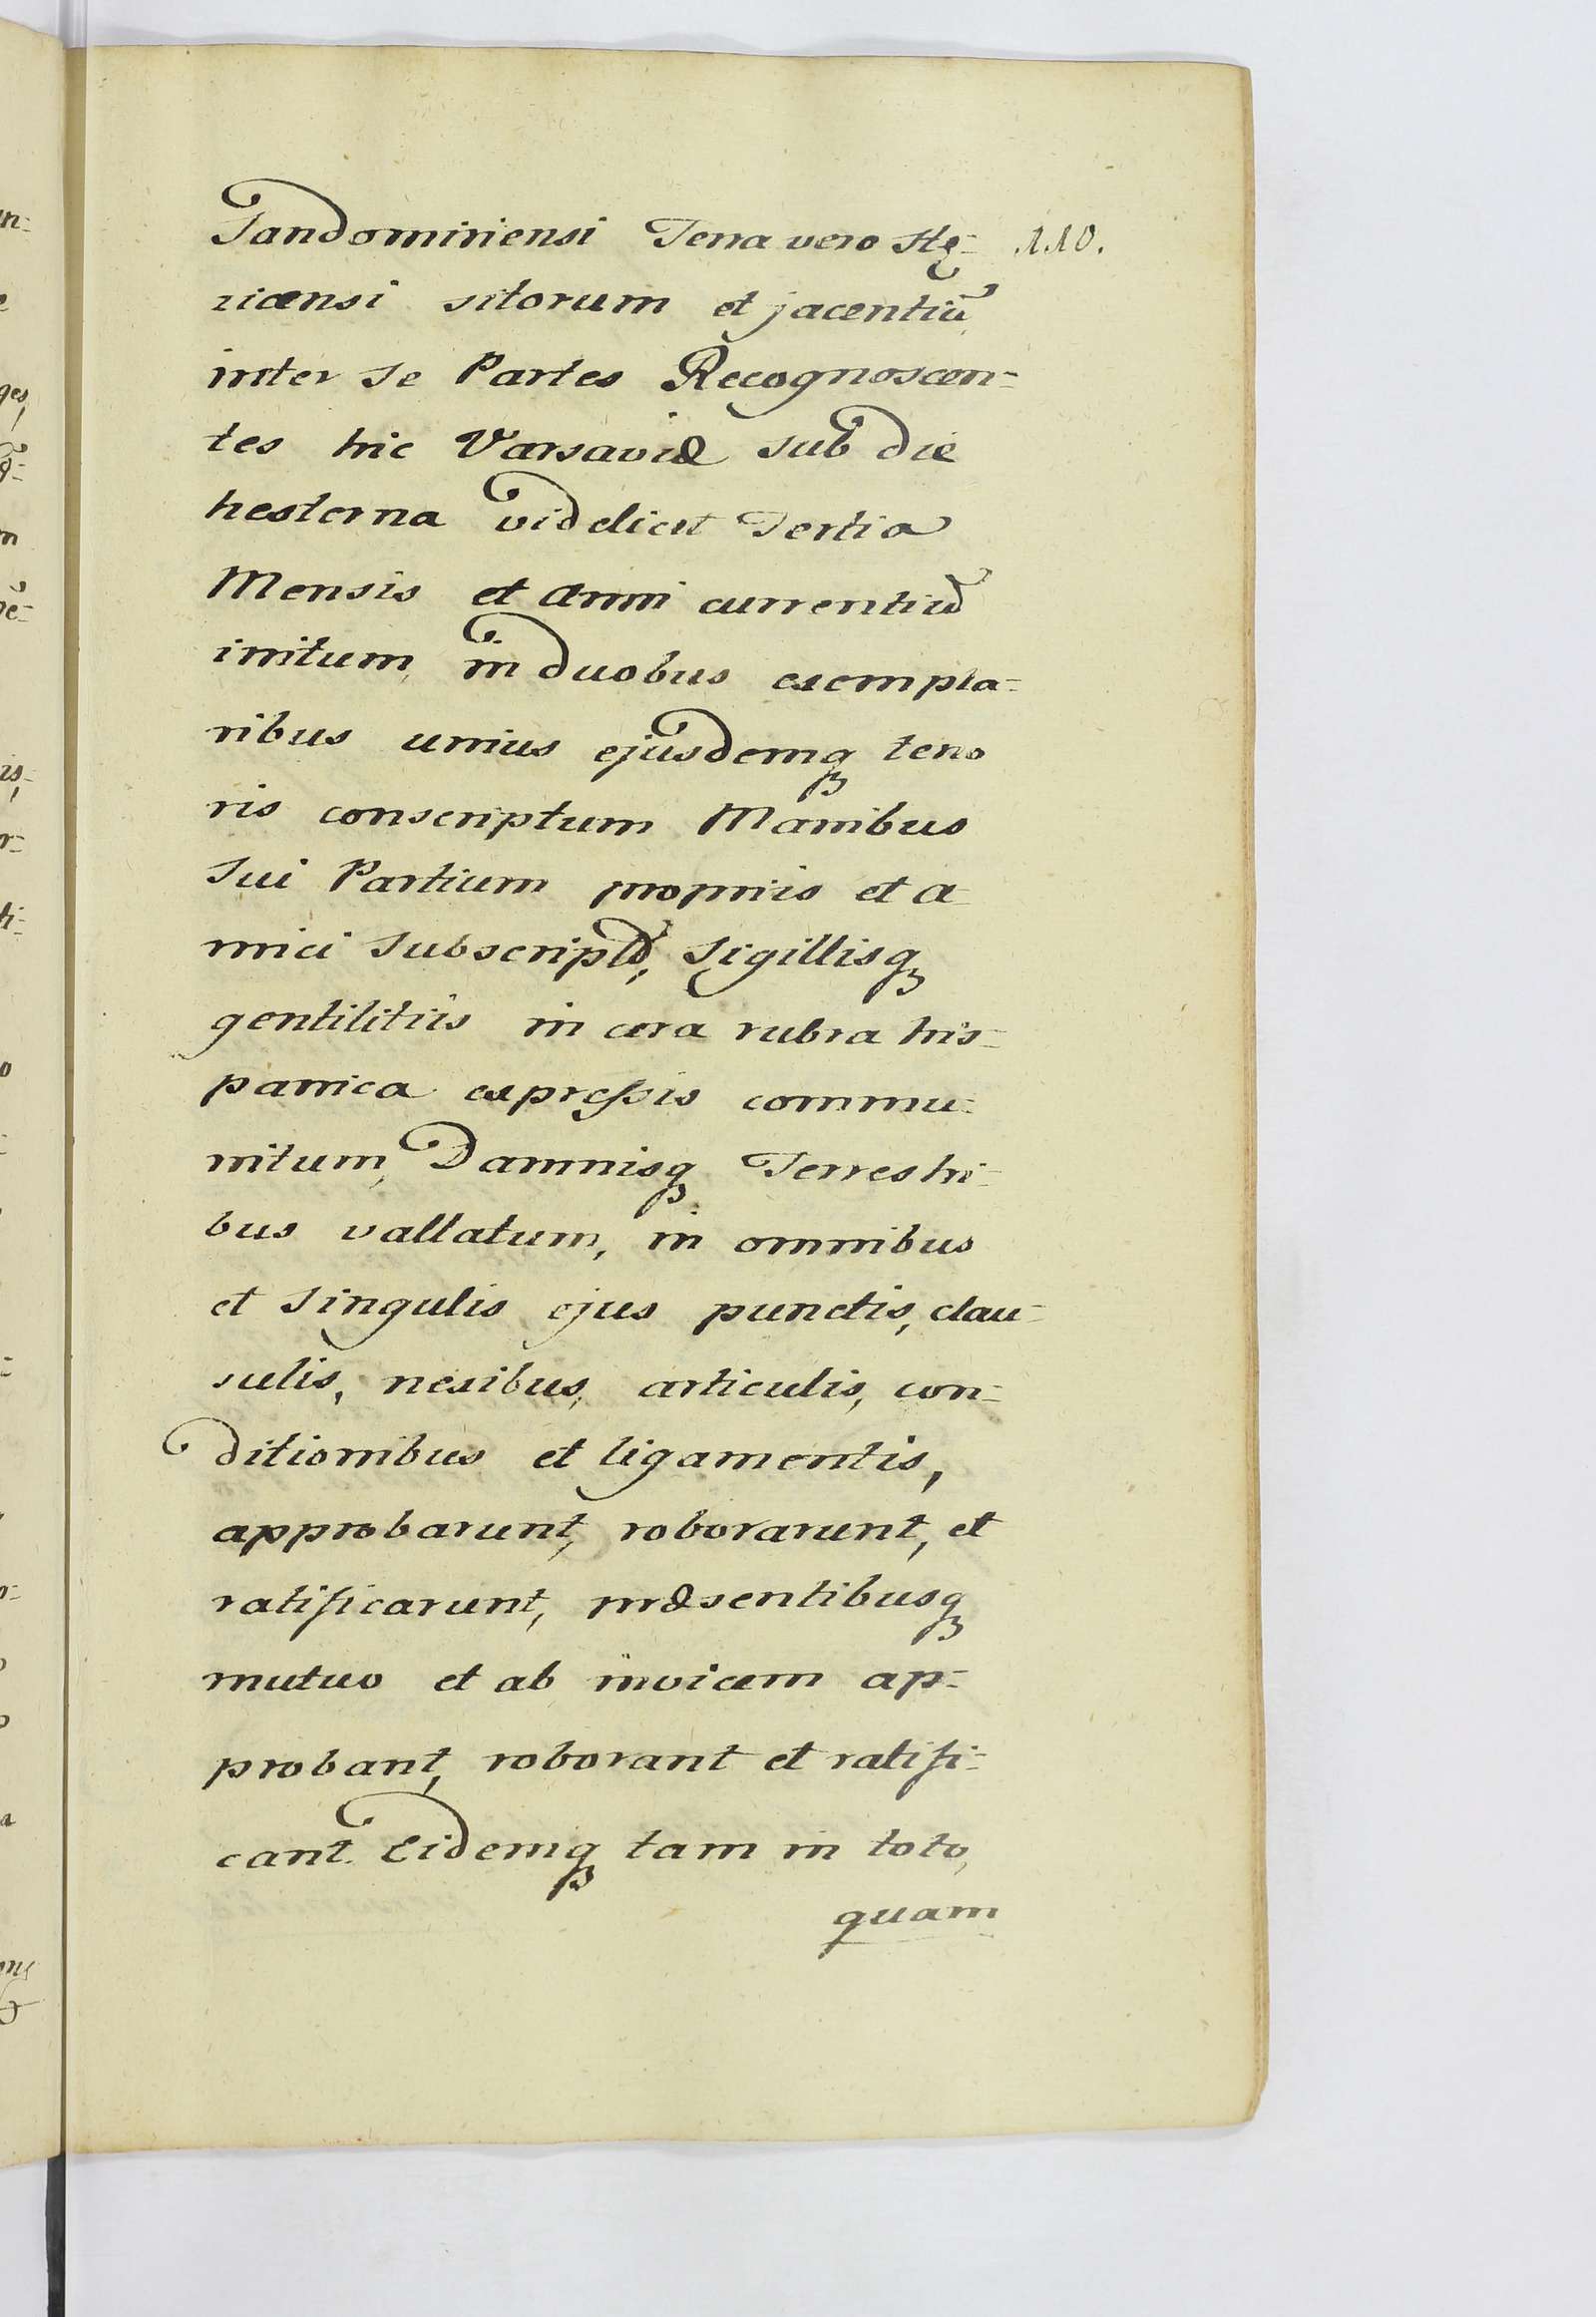 Sandomiriensi Terra vero Stę= 110.
zicensi sitorum et jacentiũ
inter se Partes Recognoscen=
tes hic Varsaviæ sub die
hesterna videlicet Tertia
Mensis et Anni currentiũ
initum, in duobus exempla=
ribus unius ejusdemq teno
ris conscriptum Manibus
Sui Partium propriis et a
mici Subscript̃, Sigillisq
gentilitiis in cera rubra his=
panica expressis commu=
nitum, Damnisq Terrestri=
bus vallatum, in omnibus
et singulis ejus punctis, clau=
sulis, nexibus, articulis, con=
ditionibus et ligamentis,
approbarunt, roborarunt, et
ratificarunt, præsentibusq
mutuo et ab invicem ap=
probant, roborant et ratifi=
cant. Eidemq tam in toto,
quam